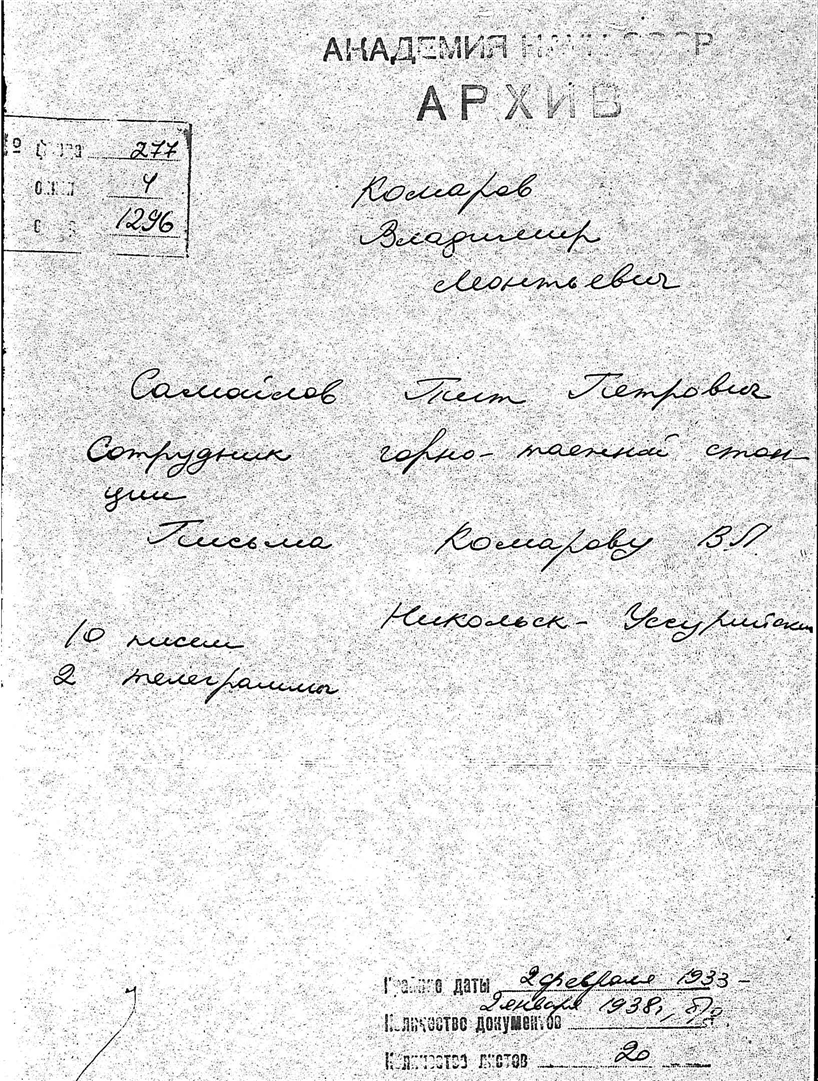 АКАДЕМИЯ НАУК СССР
АРХИВ
№ фонда 277
опись 4
1296
Комаров
Владимир
Леонтьевич
Самойлов Тит Петрович
Сотрудник горно-таежной стан-
ции
Письма Комарову В.Л.
Никольск-Уссурийский
10 писем
2 телеграммы
Крайние даты 2 февраля 1933 –
2 января 1938 г., б/д
Количество документов
Количество листов 20